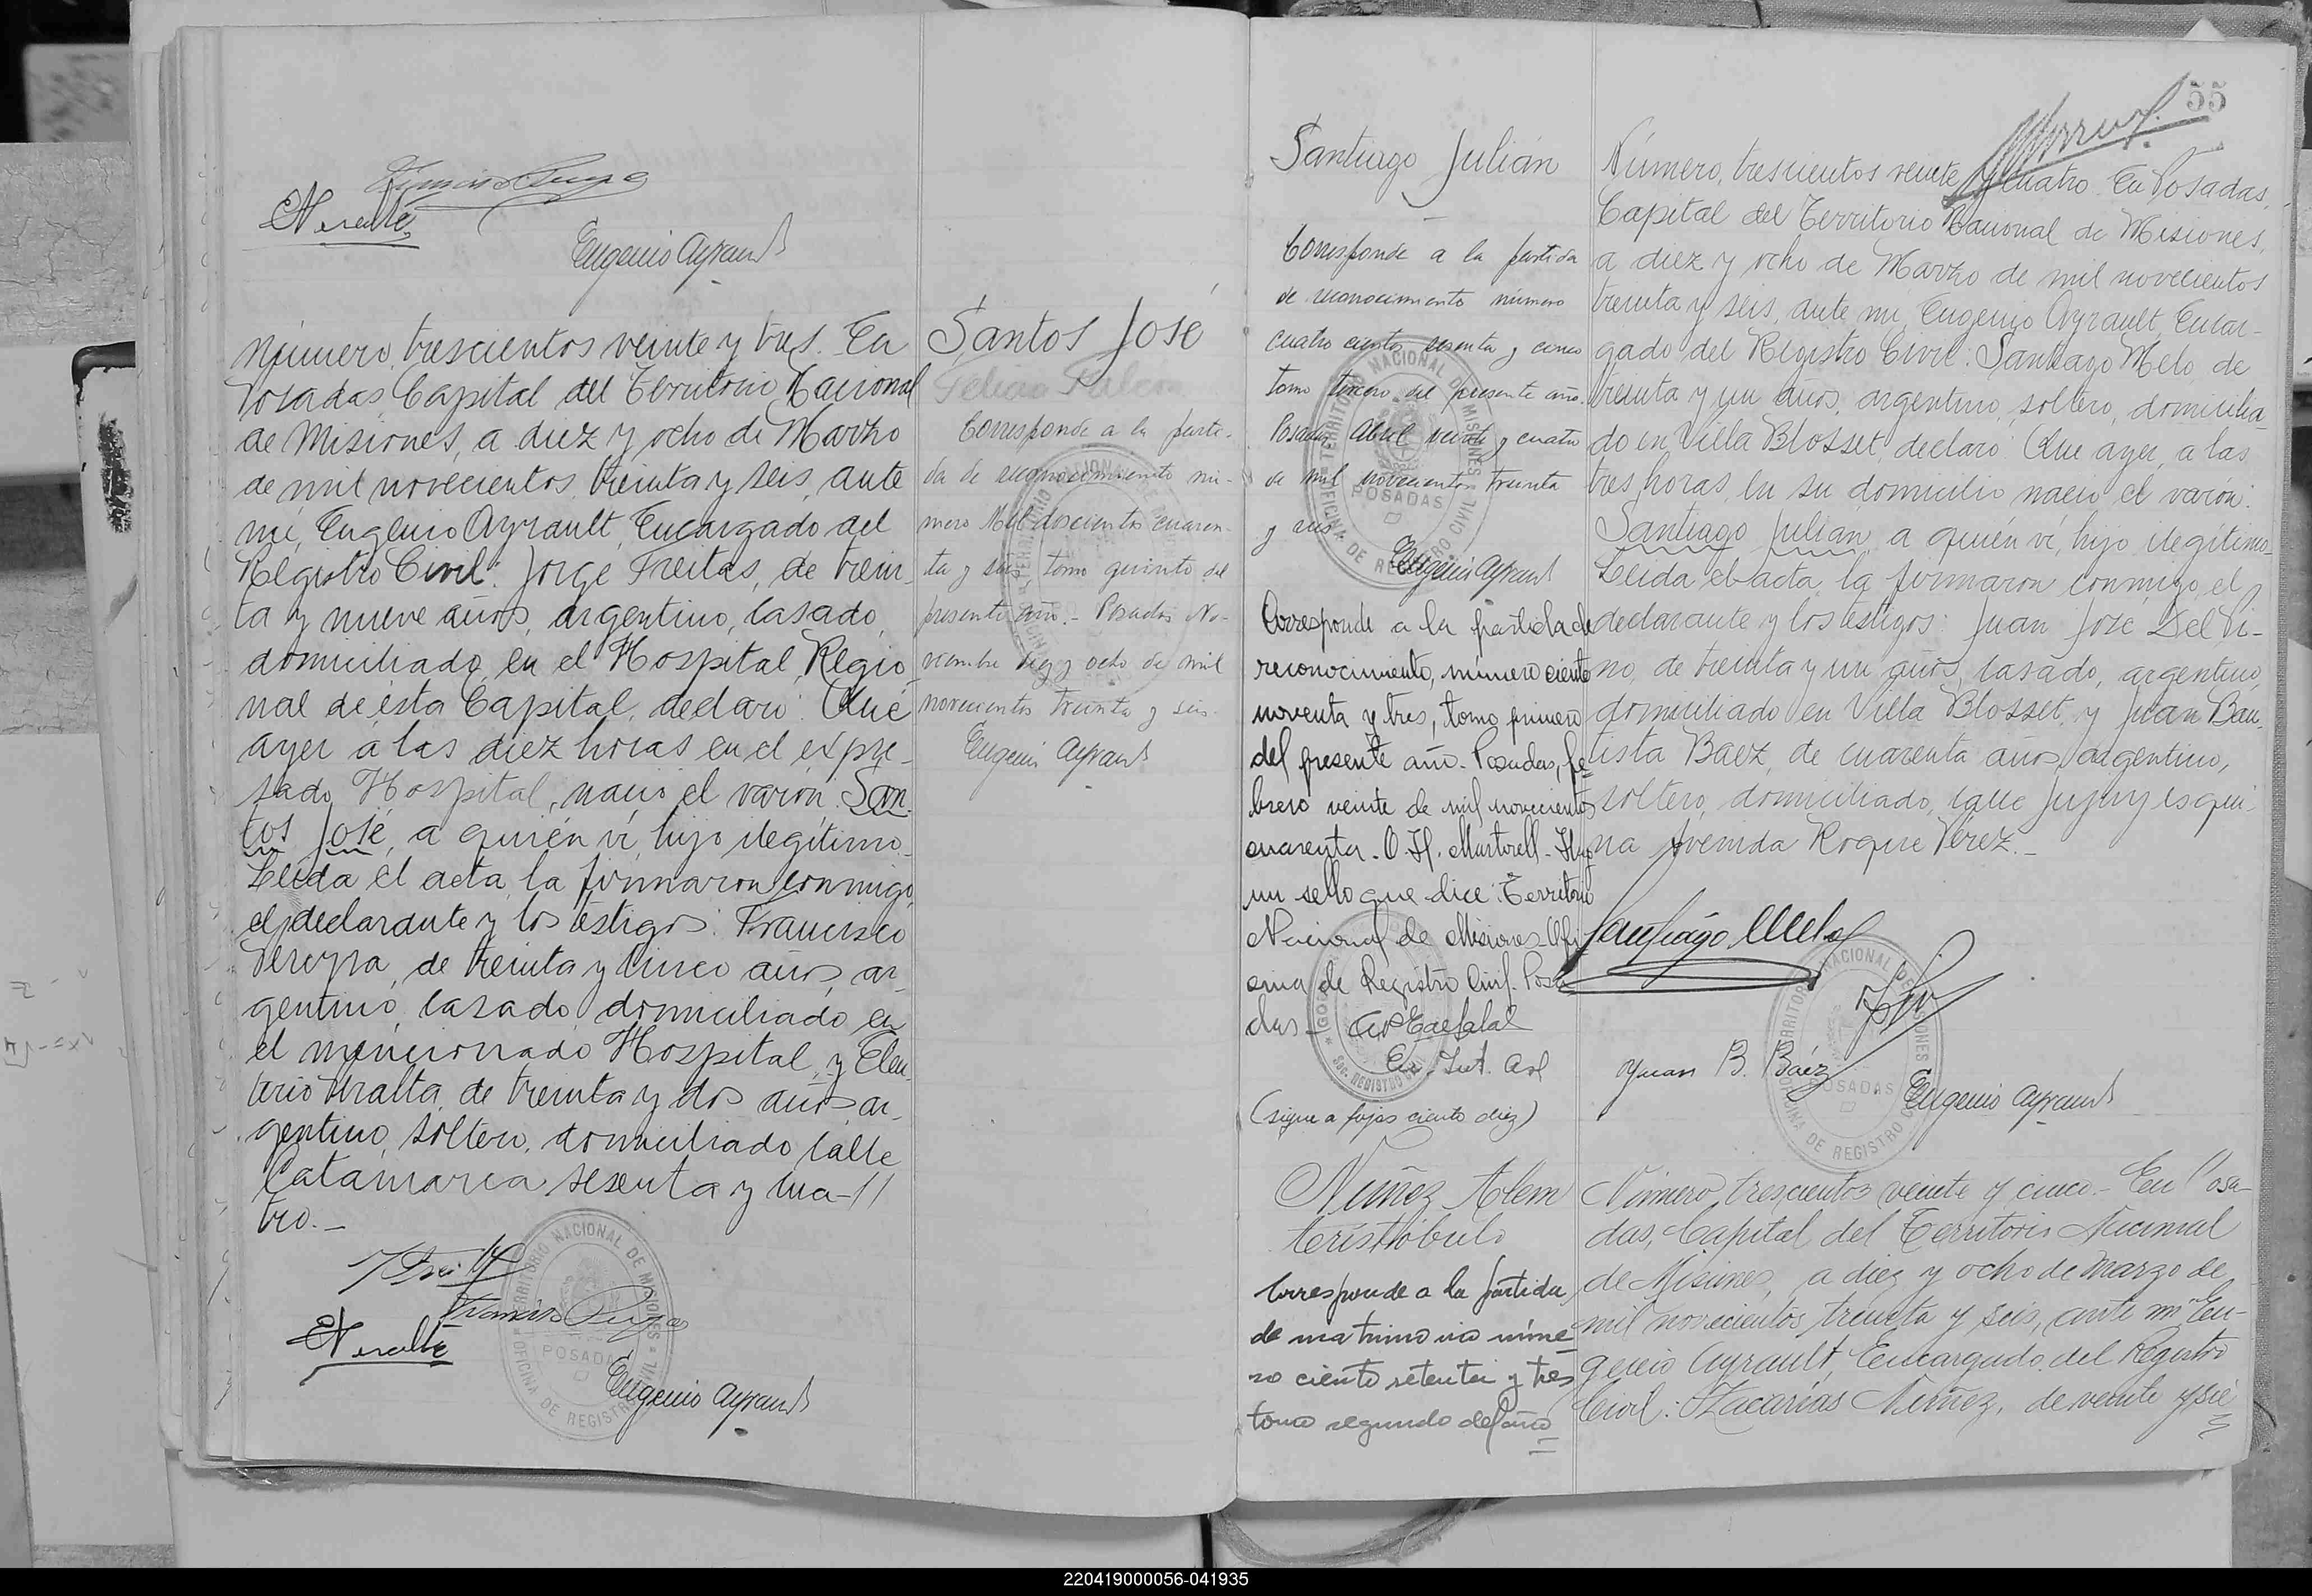 Eugenio Ayrault
Número trescientos veinte y tres. En
Posadas, Capital del Territorio Nacional
de Misiones, a diez y ocho de Marzo
de mil novecientos treinta y seis, ante
mí, Eugenio Ayrault, Encargado del
Registro Civil: Jorge Freitas, de trein-
ta y nueve años, argentino, casado,
domiciliado en el Hospital Regio-
nal de ésta Capital, declaró: Que
ayer a las diez horas en el expre-
sado Hospital, nació el varón San-
tos José, a quién ví, hijo ilegítimo.
Leída el acta, la firmaron conmigo,
el declarante y los testigos: Francisco
Pereyra, de treinta y cinco años, ar-
gentino, casado, domiciliado en
el mencionado Hospital, y Eleu-
terio Peralta, de treinta y dos años ar-
gentino, soltero, domiciliado calle
Catamarca sesenta y cua-
tro.-
Eugenio Ayrault
Santos José
Corresponde a la parti-
da de reconocimiento nú-
mero Mil doscientos cuaren-
ta y seis tomo quinto del
presente año.- Posadas No-
viembre diez y ocho de mil
novecientos treinta y seis.
Eugenio Ayrault
55
Santiago Julián
Corresponde a la partida
de reconocimiento número
cuatro cientos sesenta y cinco
tomo tercero del presente año.
Posadas, Abril veinte y cuatro
de mil novecientos treinta
y seis.
Eugenio Ayrault
Corresponde a la partida de
reconocimiento, número ciento
noventa y tres, tomo primero
del presente año. Posadas, fe-
brero veinte de mil novecientos
cuarenta. O. H. Martorell - Hay
un sello que dice: Territorio
Nacional de Misiones - Ofi
cina de Registro Civil. Posa
das -
(sigue a fojas ciento diez)
Número, trescientos veinte y cuatro. En Posadas,
Capital del Territorio Nacional de Misiones,
a diez y ocho de Marzo de mil novecientos
treinta y seis, ante mí, Eugenio Ayrault, Encar-
gado del Registro Civil: Santiago Melo, de
treinta y un años, argentino, soltero, domicilia-
do en Villa Blosset, declaró: Que ayer, a las
tres horas, en su domicilio nació el varón:
Santiago Julián, a quién ví, hijo ilegítimo.
Leída el acta, la firmaron conmigo, el
declarante y los testigos: Juan José Del Vi-
no, de treinta y un años, casado, argentino,
domiciliado en Villa Blosset, y Juan Bau-
tista Baez, de cuarenta años, argentino,
soltero, domiciliado, calle Jujuy esqui-
na Avenida Roque Pérez.-
Santiago Melo
Juan B. Báez
Eugenio Ayrault
Núñez Alem
Aristóbulo
Corresponde a la partida
de matrimonio núme-
ro ciento setenta y tres
tomo segundo del año
Número, trescientos veinte y cinco.- En Posa-
das, Capital del Territorio Nacional
de Misiones, a diez y ocho de marzo de
mil novecientos treinta y seis, ante mí Eu-
genio Ayrault, Encargado del Registro
Civil: Zacarías Núñez, de veinte y sie
220419000056-041935